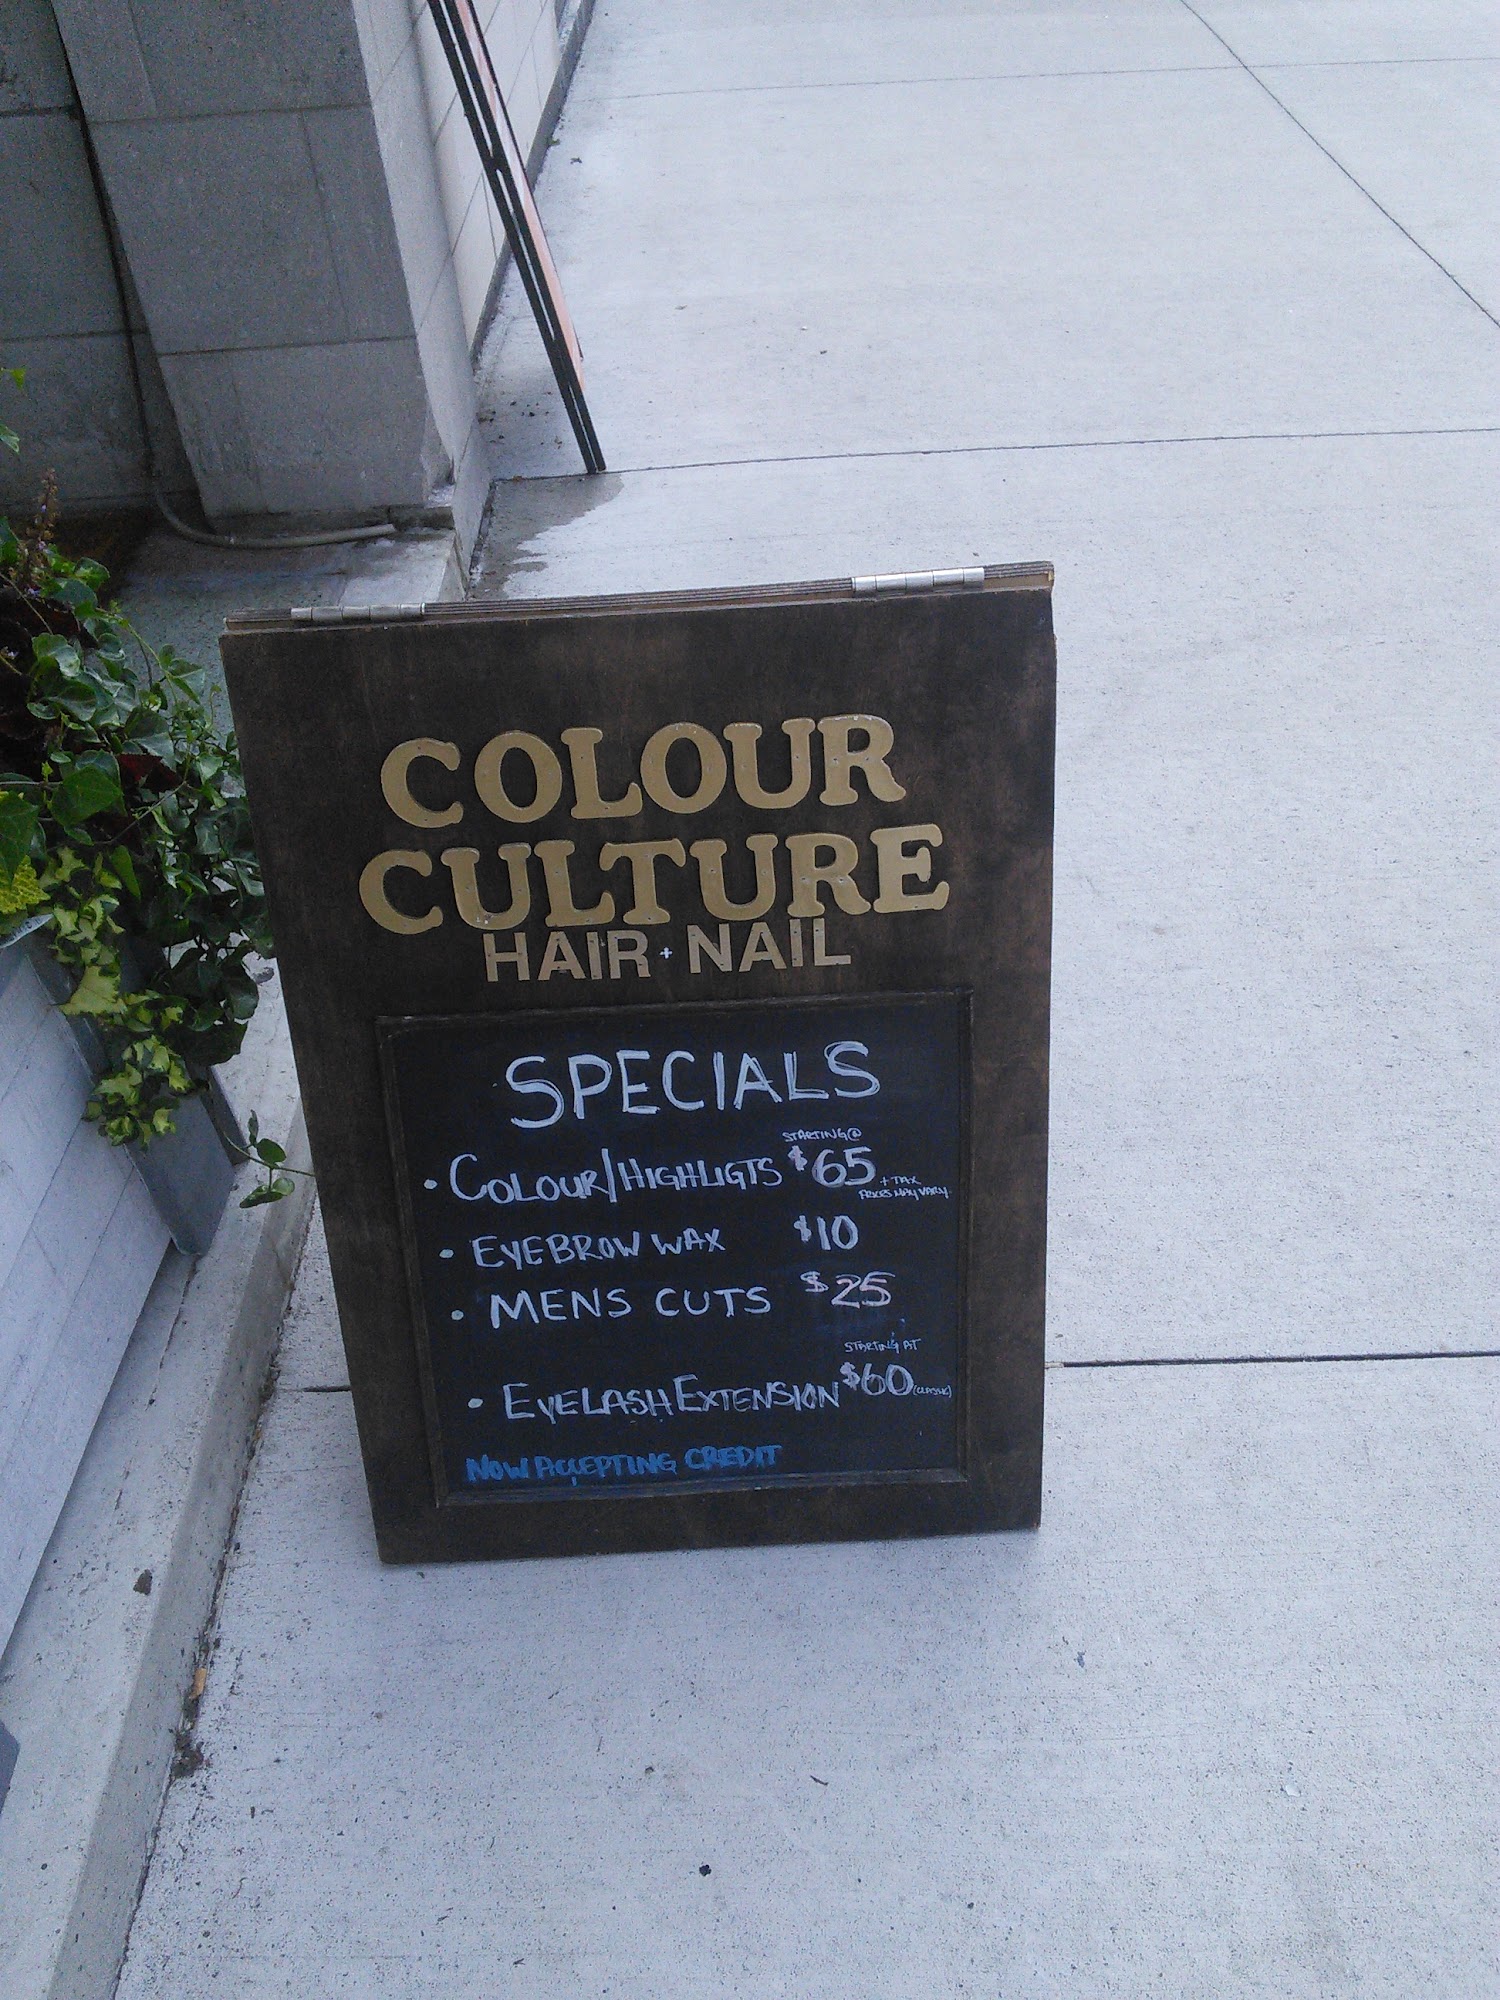 COLOUR
CULTURE
HAIR + NAIL
SPECIALS
STARTING @
• COLOUR/HIGHLIGTS $65 + TAX
PRICES MAY VARY
• EYEBROW WAX $10
• MENS CUTS $25
STARTING AT
• EYELASH EXTENSION $60 (CLASSIC)
NOW ACCEPTING CREDIT